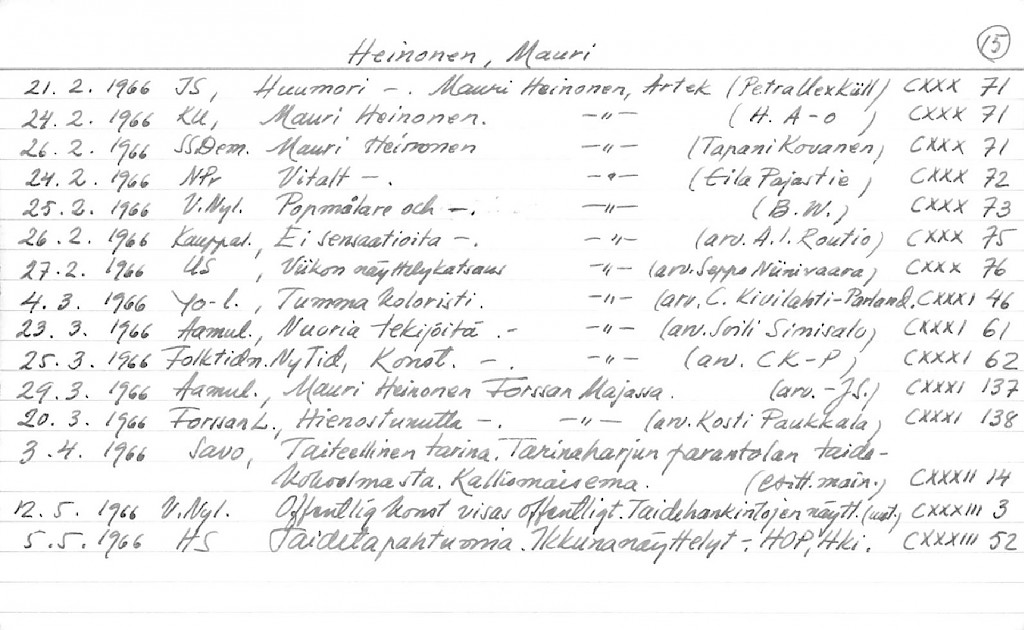 15
Heinonen, Mauri
21. 2. 1966 IS, Huumori -. Mauri Heinonen, Artek (Petra Uexküll) CXXX 71
24. 2. 1966 KU, Mauri Heinonen. -"- (H. A-o) CXXX 71
26. 2. 1966 SSDem. Mauri Heinonen -"- (Tapani Kovanen) CXXX 71
24. 2. 1966 NPr Vitalt -. -"- (Eila Pajastie) CXXX 72
25. 2. 1966 V.Nyl. Popmålare och -. -"- (B.W.) CXXX 73
26. 2. 1966 Kauppal., Ei sensaatioita -. -"- (arv. A.I. Routio) CXXX 75
27. 2. 1966 US, Viikon näyttelykatsaus -"- (arv. Seppo Niinivaara) CXXX 76
4. 3. 1966 Yo-l., Tumma koloristi. -"- (arv. C. Kivilahti-Parland. CXXXI 46
23. 3. 1966 Aamul., Nuoria tekijöitä. - -"- (arv. Soili Sinisalo) CXXXI 61
25. 3. 1966 Folktidn. Ny Tid, Konst. -. -"- (arv. CK-P) CXXXI 62
29. 3. 1966 Aamul., Mauri Heinonen Forssan Majassa. (arv. -JS.) CXXXI 137
20. 3. 1966 Forssan L., Hienostunutta -. -"- (arv. Kosti Paukkala) CXXXI 138
3. 4. 1966 Savo, Taiteellinen tarina. Tarinaharjun parantolan taide-
kokoelmasta. Kalliomaisema. (es.tt. main.) CXXXII 14
12. 5. 1966 V.Nyl. Offentlig konst visas offentligt. Taidehankintojen näytt. CXXXIII 3
5. 5. 1966 HS Taidetapahtumia. Ikkunanäyttelyt -, HOP, Hki. CXXXIII 52